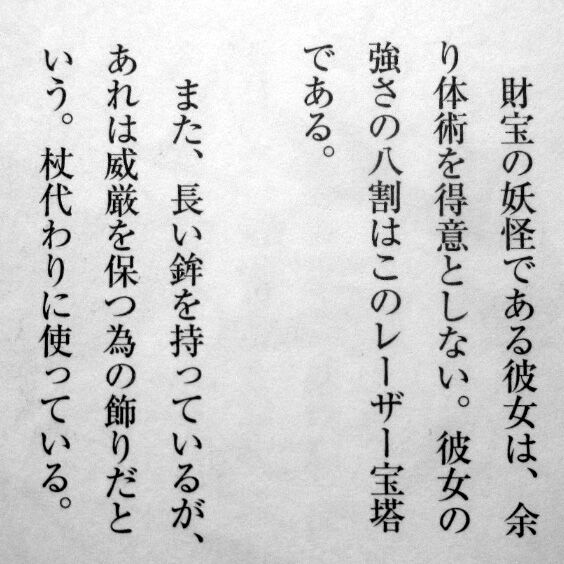 財宝の妖怪である彼女は、余
り体術を得意としない。彼女の
強さの八割はこのレーザー宝塔
である。
また、長い鉾を持っているが、
あれは威厳を保つ為の飾りだと
いう。杖代わりに使っている。